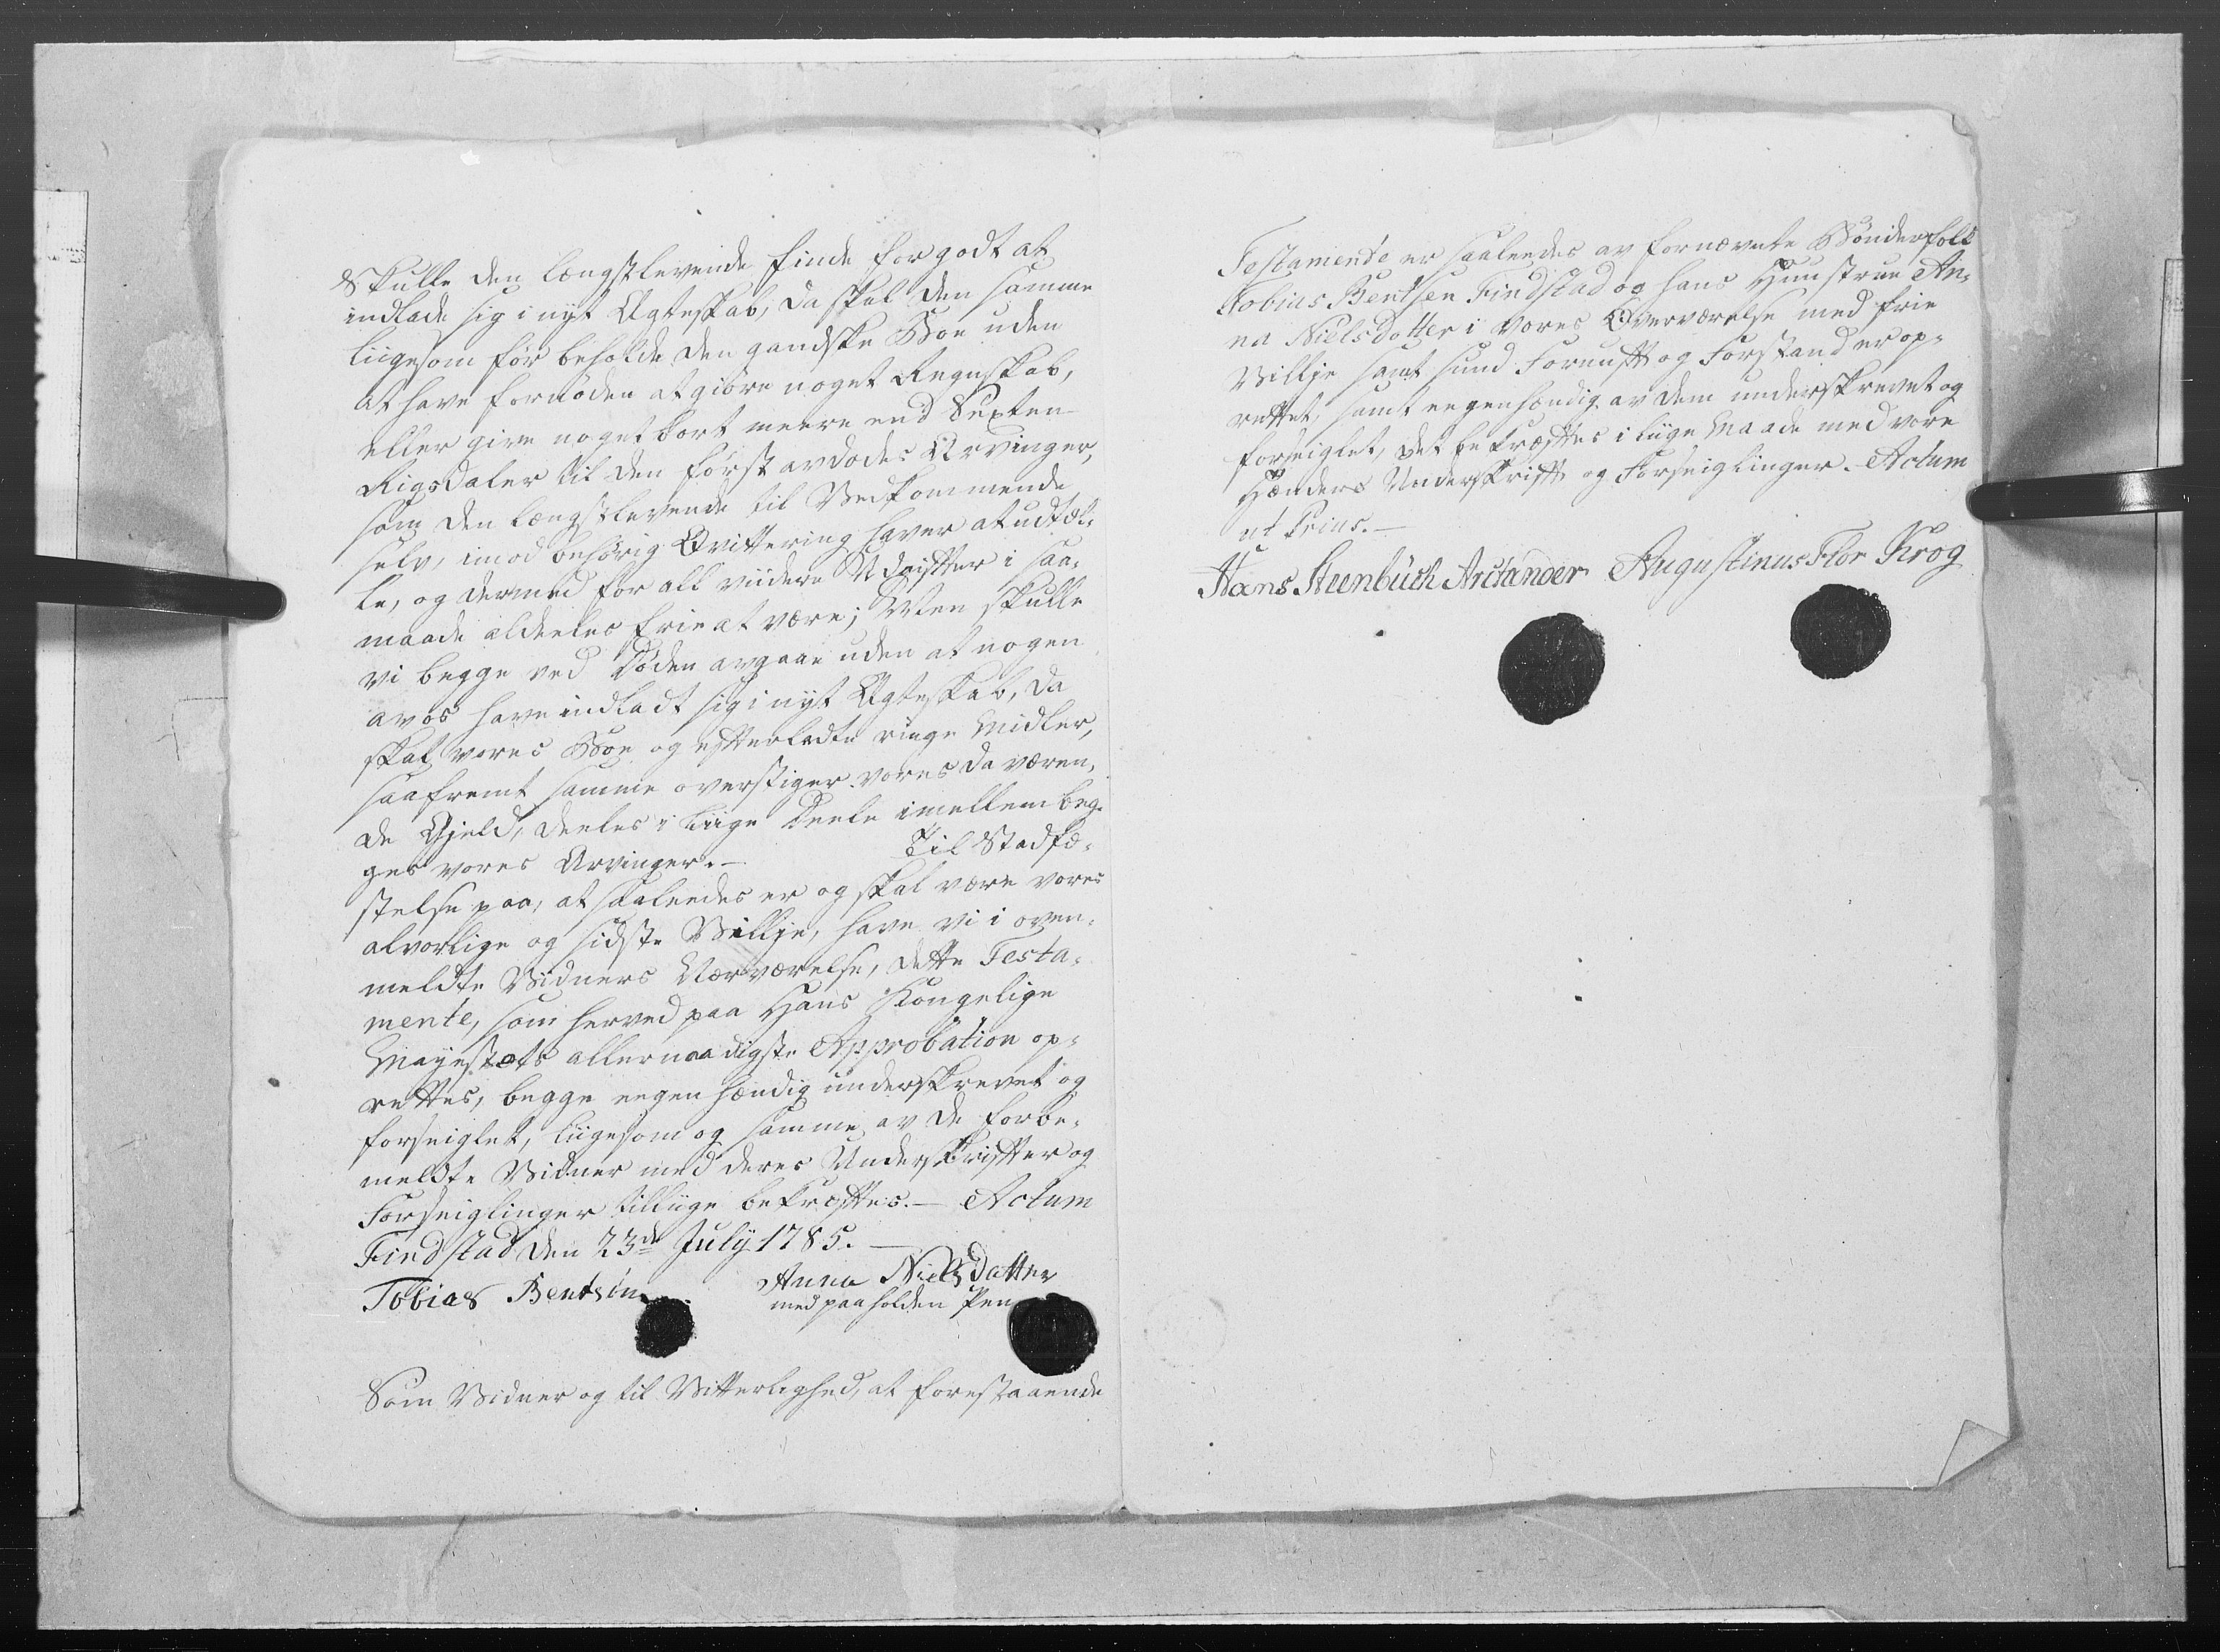 Skulle den længstlevende finde for godt at
indlade sig i nyt Ægteskab, da skal den samme
liigesom før beholde den gandske Boe uden
at have fornøden at giøre noget Regnskab,
eller give noget bort meere end Sexten
Rigsdaler til den først avdødes Arvinger,
som den længstlevende til Vedkommende
selv, imod behørig Qvittering haver at udtæl-
le, og dermed for all viidere Udgifter i saa-
maade aldeeles frie at være; Men skulle
vi begge ved Døden avgaae uden at nogen
av os have indladt sig i nyt Ægteskab, da
skal vores Boe og efterladte ringe Midler,
saafremt samme overstiger vores da væren-
de Gjeld, deeles i liige Deele imellem beg-
ges vores Arvinger. — Til Stadfæ-
stelse paa, at saaleedes er og skal være vores
alvorlige og sidste Villje, have vi i oven-
meldte Vidners Nærværelse, dette Testa-
mente, som herved paa Hans Kongelige
Mayestæts allernaadigste Approbation op-
rettes, begge eegenhændig underskrevet og
forseiglet, liigesom og samme av de forbe-
meldte Vidner med deres Underskrifter og
Forseiglinger tilliige bekræftes. — Actum
Findstad den 23de July 1785. —
Tobias Bentsen Anna Nielsdatter
med paaholden Pen
Som Vidner og til Vitterlighed, at forestaaende
Testamente er saaleedes av fornævnte Bønderfolk
Tobias Bentsen Findstad og hans Huustrue An-
na Nielsdotter i vores Overværelse med frie
Villje samt sund Fornuft og Forstand er op-
rettet, samt eegenhændig av dem underskrevet og
forseiglet, det bekræftes i liige Maade med vore
Hænders Underskrift og Forseiglinger. Actum
ut Prius. —
Hans Steenbüch Arctander Augustinus Flor Krog